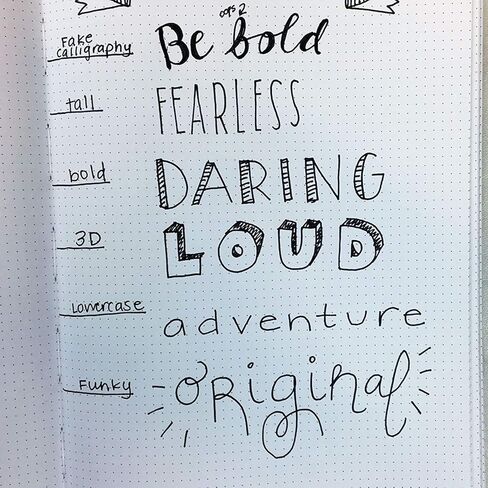 oops
Fake Calligraphy
Be bold
tall
FEARLESS
bold
DARING
3D
LOUD
Lowercase
adventure
Funky
ORiginal